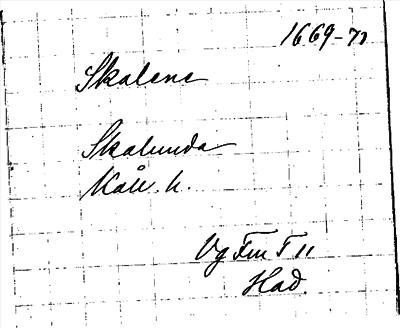 1669-71
Skalene
Skalunda
Kåll. h.
Vg Fm T 11
Had.